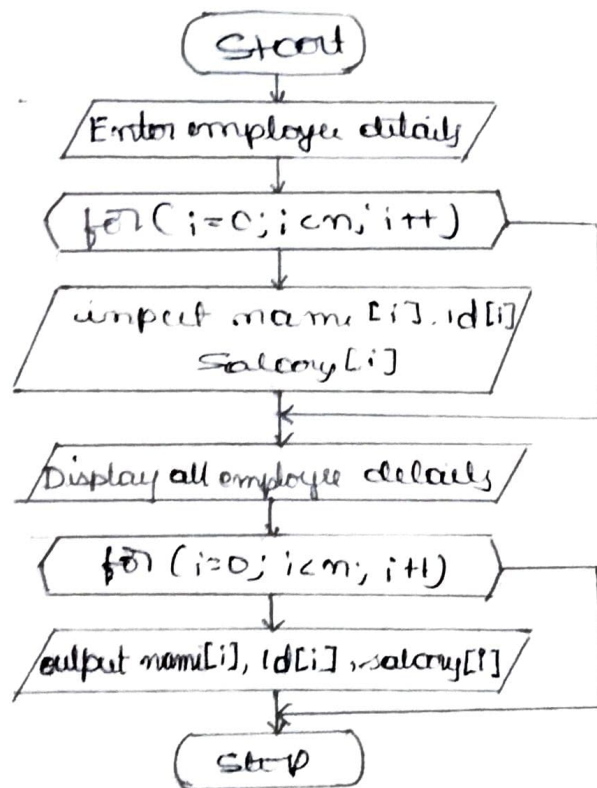 Start
Enter employee details
for ( i=0; i<n; i++)
input name [i], id[i]
Salary [i]
Display all employee details
for (i=0; i<n; i++)
output name[i], id[i], salary[i]
Stop